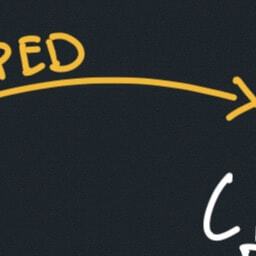 PED
C